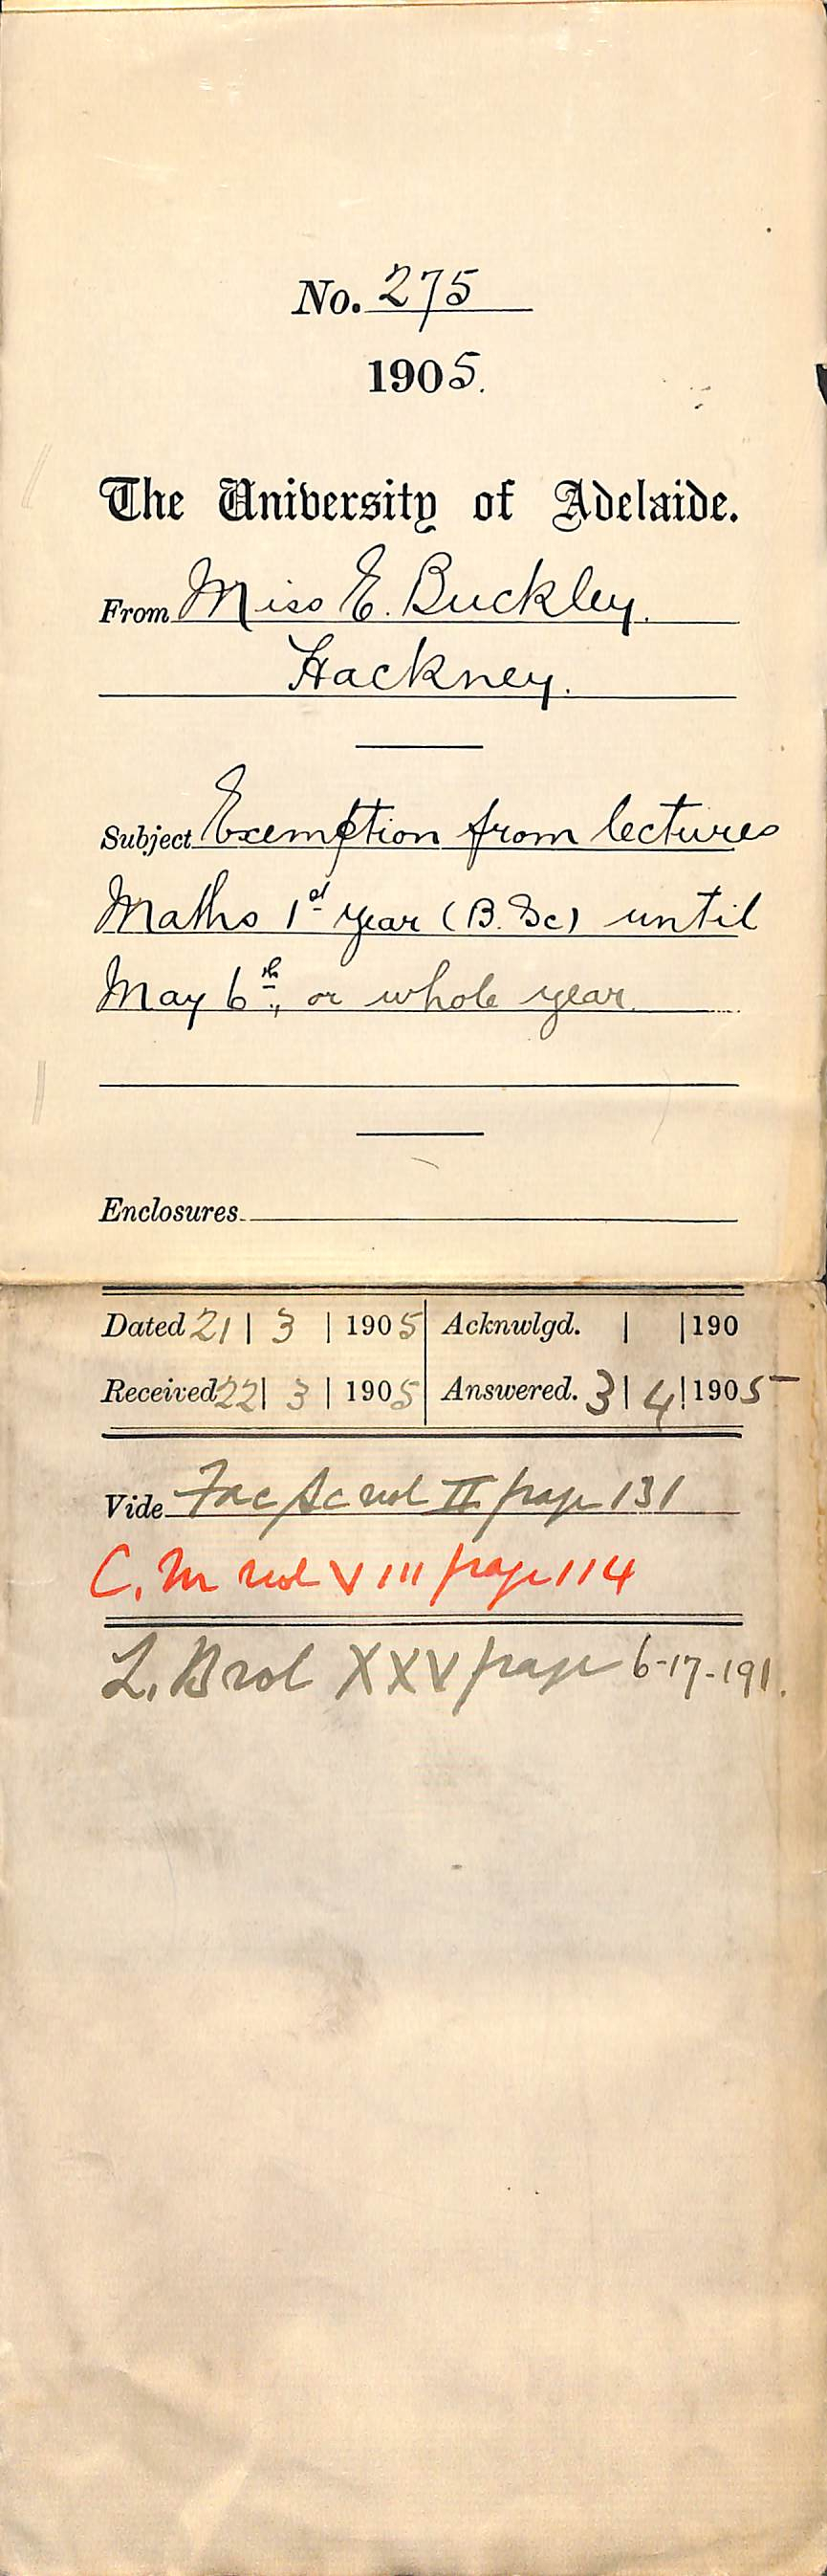 No. 275
1905.
The University of Adelaide.
From Miss E. Buckley.
Hackney.
Subject Exemption from lectures
Maths 1st year (B.Sc) until
May 6th, or whole year.
Enclosures
Dated 21 | 3 | 1905 Acknwlgd. | | 190
Received 22 | 3 | 1905 Answered. 3 | 4 | 1905
Vide Fac Sc vol II page 131
C. M vol VIII page 114
L. B vol XXV page 6-17-191.